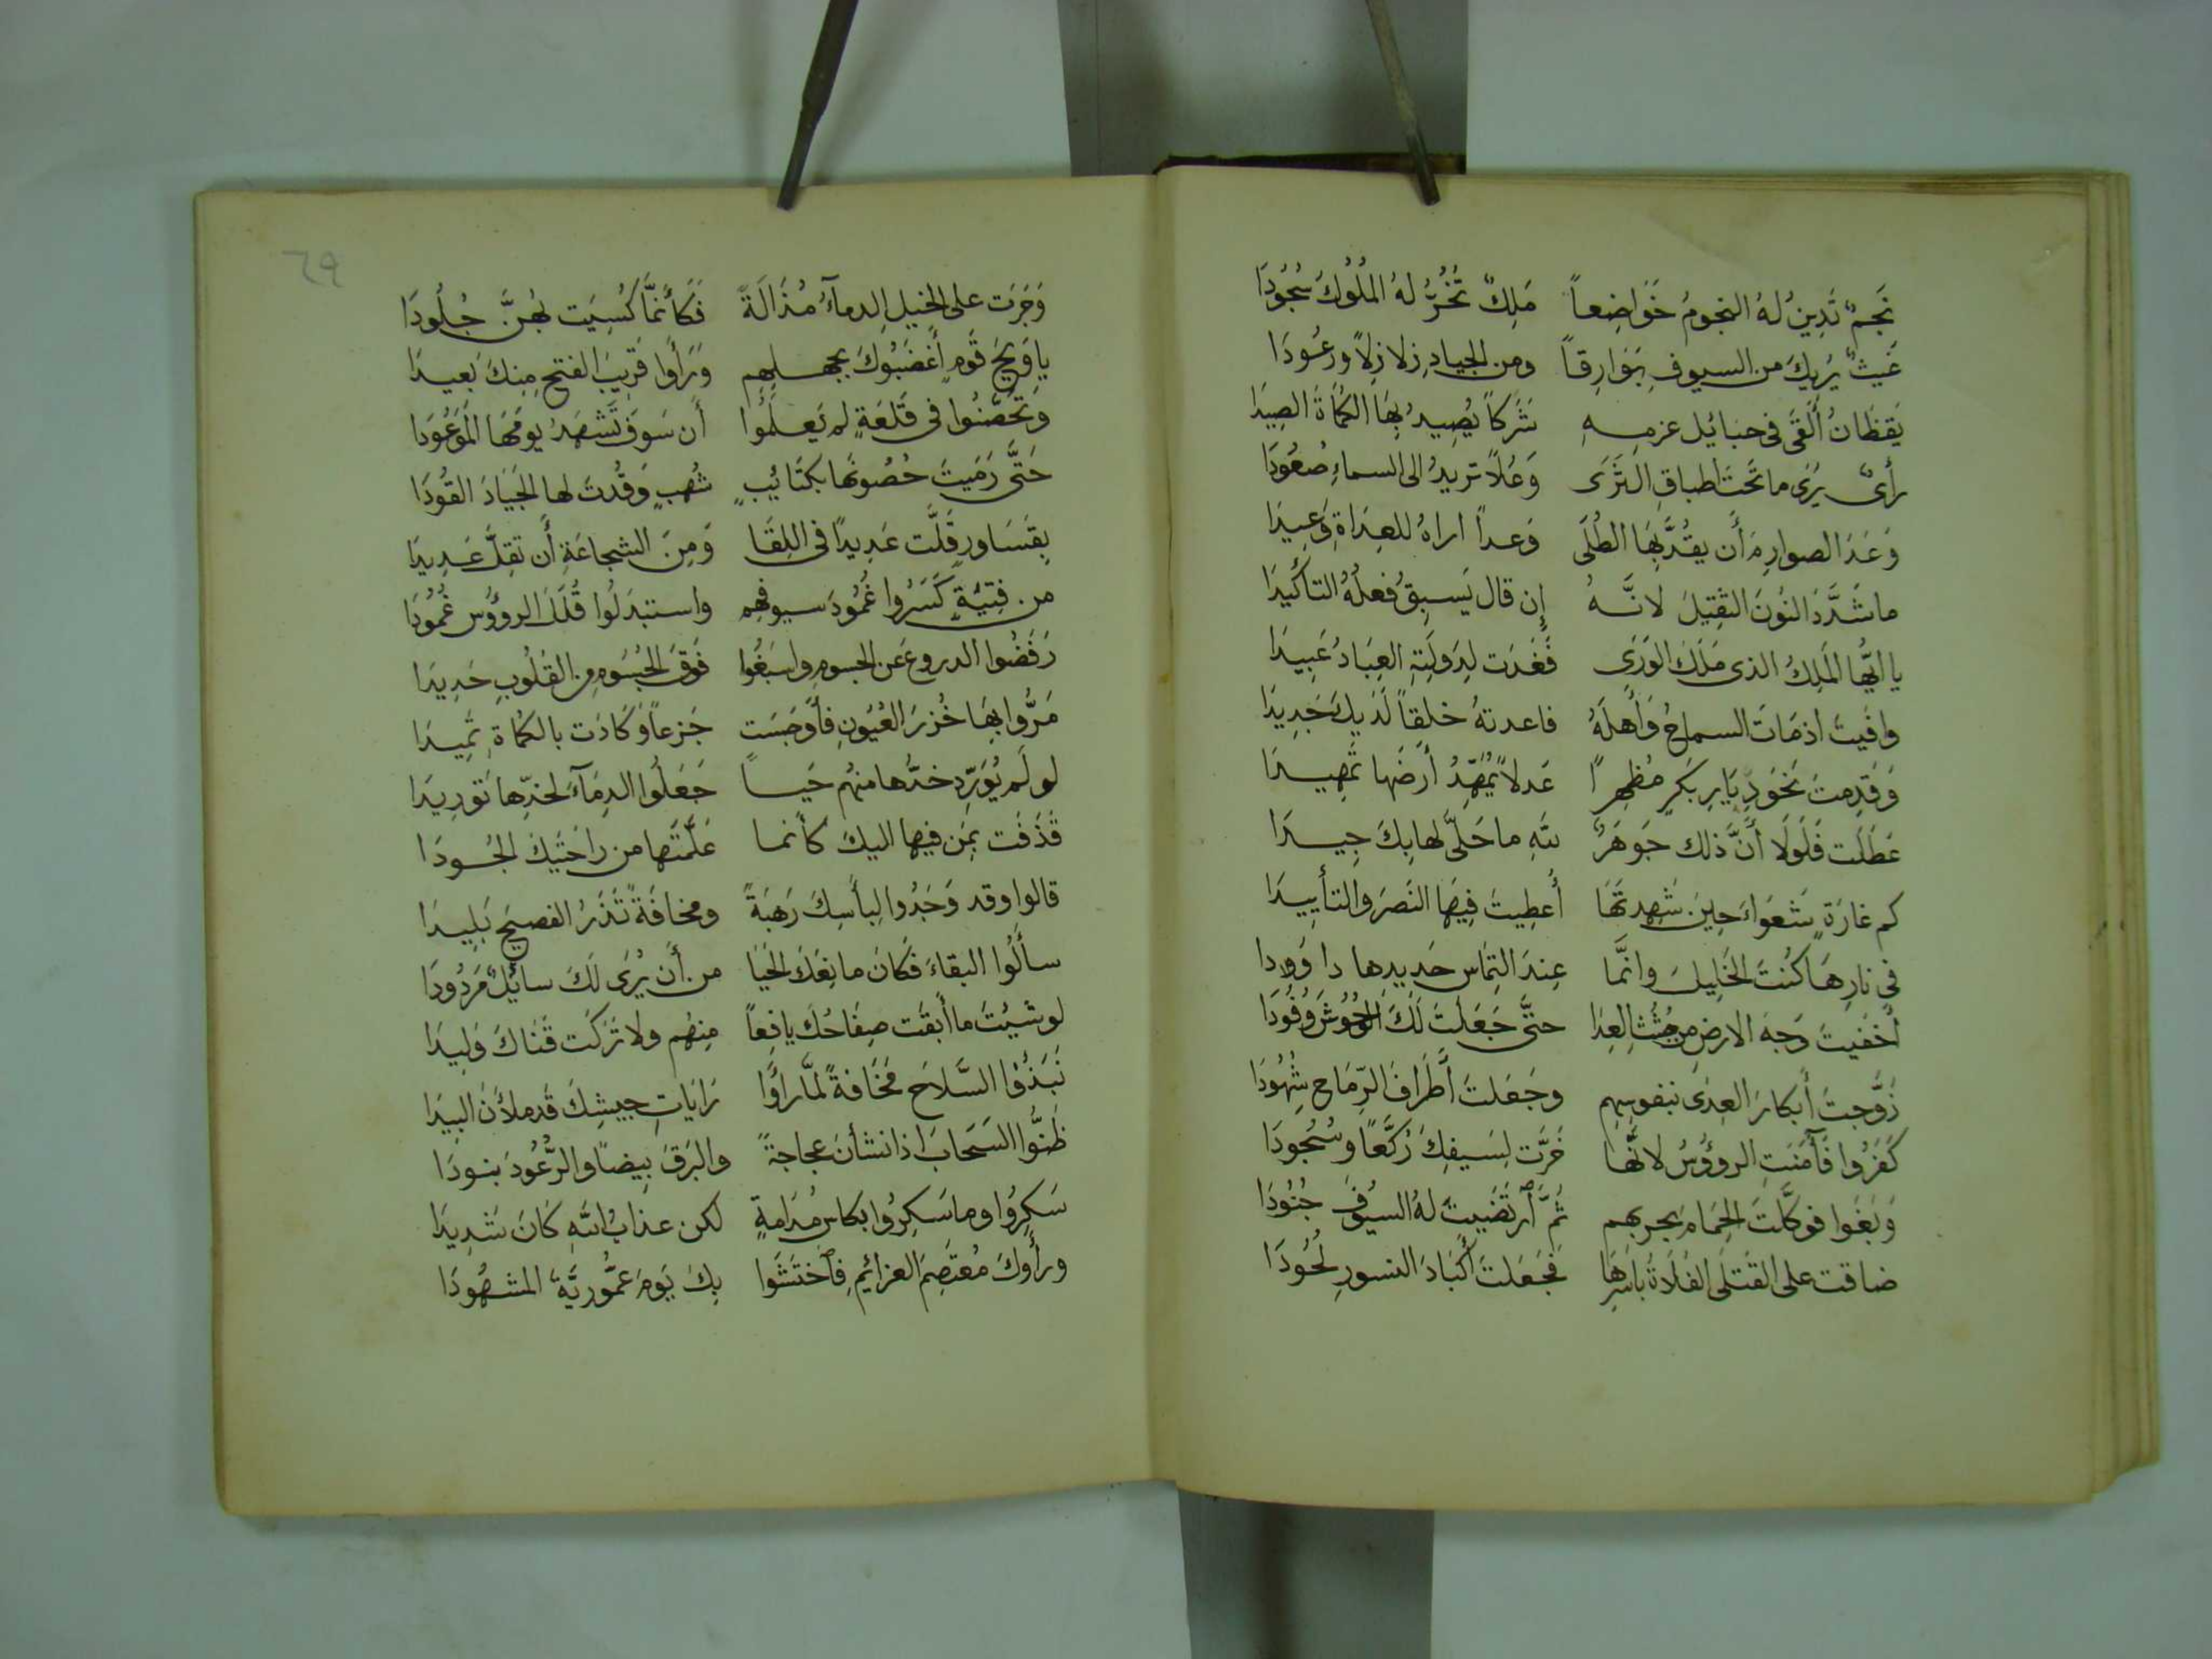 نَجمٌ تَدِينُ لهُ النجومُ خَوَاضِعاً مَلِكٌ تَخُرُّ لهُ المُلُوكُ سُجُودَا
غَيثٌ يُرِيكَ من السيوفِ بَوَارِقاً ومن الجيادِ زلازِلاً ورعُودَا
يَقظَانُ أَلقَى فى حبائل عزمِهِ شَرَكاً يُصِيدُ بِهَا الكُمَاةَ الصِيدَا
رأىٌ يَرَى ما تَحتَ أطباقِ الثَرَى وَعُلاً تريدُ الى السماءِ صُعُودَا
وَعَدَ الصوارِمَ أَن يقُدَّ بِهَا الطُلَى وَعداً اراهُ للعِدَاةِ وَعِيدَا
ما شَدَّدَ النُونَ الثقِيلَ لانَّهُ إن قال يَسبِقُ فعلُهُ التأكيدَا
يا ايُّها المَلِكُ الذى مَلَكَ الوَرَى فَغَدَت لِدَولَتِهِ العِبَادُ عَبِيدَا
وافَيتَ اذ مَاتَ السماحُ وَأَهلُهُ فاعدتهُ خلقاً لَدَيكَ جَدِيدَا
وَقَدِمتَ نَحوَ دِيَارِ بَكرٍ مُظهِراً عَدلاً يُمَهِّدُ أَرضَها تَمهِيدَا
عَطَلَت فَلَولَا أَنَّ ذلك جَوهَرٌ للهِ ما حَلَّى لها بِكَ جِيدَا
كم غارَةٍ شَعوَاءَ حِينَ شَهِدتَهَا أُعطِيتَ فِيهَا النَصرَ والتأييدَا
فى نارِهَا كُنتَ الخَلِيلَ وانَّما عِندَ التِمَاسِ حَدِيدِها داوودا
أخفَيتَ وَجهَ الارضِ من جُثَثِ العِدَا حتَّى جَعَلتَ لَكَ الوُحُوشَ وُفُودَا
زَوَّجتَ أَبكارَ العِدَى بنفوسِهِم وجَعَلتَ أَطرَافَ الرِّمَاحِ شُهُودَا
كَفَرُوا فَآمَنَتِ الروؤُسُ لانَّها خَرَّت لِسَيفِكَ رُكَّعًا وسُجُودَا
وَبَغَوا فوكَّلتَ الحِمَامَ بحربهم ثمَّ ارتَضَيتَ لهُ السيُوفَ جنُودَا
ضاقت على القَتلَى الفَلَاةُ بأسرِهَا فَجَعَلتَ أكبَادَ النسورِ لُحُودَا
٦٩
وَجَرَت على الخيلِ الدماءُ مُذَالَةً فَكَأَنمَّا كُسِيَت لهُنَّ جُلُودَا
يا وَيحَ قَومٍ أَغضَبُوكَ بجهلِهِم وَرَأَوا قَرِيبَ الفتحِ مِنكَ بَعِيدَا
وَتَحَصَّنُوا فى قَلعَةٍ لم يَعلَمُوا أَن سَوفَ تَشهَدُ يومَهَا المَوعُودَا
حَتَّى رَمَيتَ حُصُونَهَا بكتَائبٍ شُهبٍ وَقُدتَ لها الجَيَادَ القُودَا
بِقَسَاورٍ قَلَّت عَدِيدًا فى اللِقَا وَمِنَ الشجاعَةِ أَن تقِلَّ عَدِيدَا
من فِتيَةٍ كَسَرُوا غُمُودَ سيوفِهِم واستبدَلُوا قُلَلَ الروؤُسِ غُمُودَا
رَفَضُوا الدروعَ عن الجسومِ واسبَغُوا فَوقَ الجُسُومِ من القُلُوبِ حَدِيدَا
مَرُّوا بِهَا خُزرَ العُيُونِ فأَوجَسَت جَزعاً وَكَادَت بالكُمَاةِ تَمِيدَا
لو لَم يُوَرِّد خدَّها منهُم حَياً جَعَلُوا الدِمَآءَ لخدِّها تَورِيدَا
قَذَفَت بمَن فيها اليكَ كأنما عَلَّمتَها من رَاحَتَيكَ الجُودَا
قالوا وقد وَجَدُوا لِبأسِكَ رَهبَةً ومخافَةً تَذَرُ الفصيحَ بَلِيدَا
سأَلُوا البقاءَ فَكَانَ مانِعَكَ الحَيَا من أَن يُرَى لَكَ سائلٌ مَردُودَا
لو شيتَ ما أَبقَت صِفَاحُكَ يافِعاً مِنهُم ولا تَرَكَت قَنَاكَ وَلِيدَا
نَبَذُوا السَّلاحَ مَخَافةً لمَّا رأَوا رَايَاتِ جيشِكَ قَد ملأنَ البِيدَا
ظَنُّوا السَحَابَ اذا نشأنَ عجاجةً والبَرقَ بِيضًا والرُّعُودَ بنودَا
سَكِرُوا وما سَكِرُوا بكاسِ مُدَامةٍ لكن عذابُ اللهِ كَانَ شَدِيدَا
ورأَوكَ مُعتَصِمَ العزائمِ فاختَشَوا بِكَ يَومَ عمُّوريَّةَ المشهُودَا